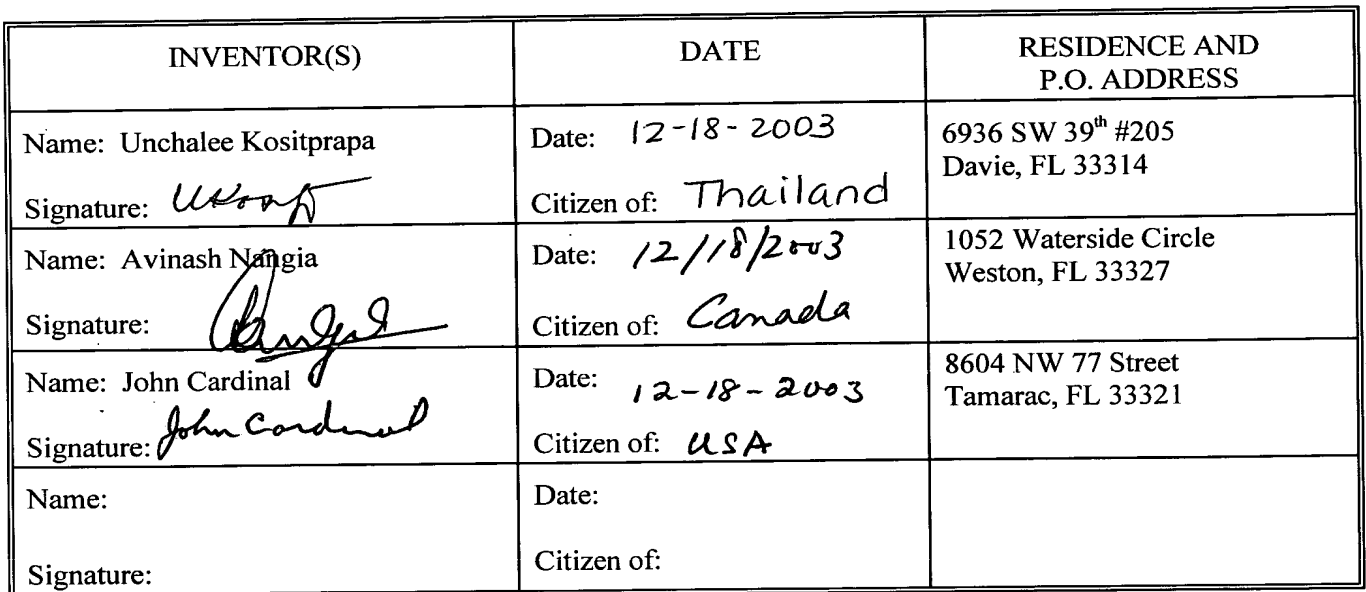 INVENTOR(S)
DATE
RESIDENCE AND
P.O. ADDRESS
Name: Unchalee Kositprapa
Signature:
Date: 12-18-2003
Citizen of: Thailand
6936 SW 39th #205
Davie, FL 33314
Name: Avinash Nangia
Signature:
Date: 12/18/2003
Citizen of: Canada
1052 Waterside Circle
Weston, FL 33327
Name: John Cardinal
Signature: John Cardinal
Date: 12-18-2003
Citizen of: USA
8604 NW 77 Street
Tamarac, FL 33321
Name:
Signature:
Date:
Citizen of: